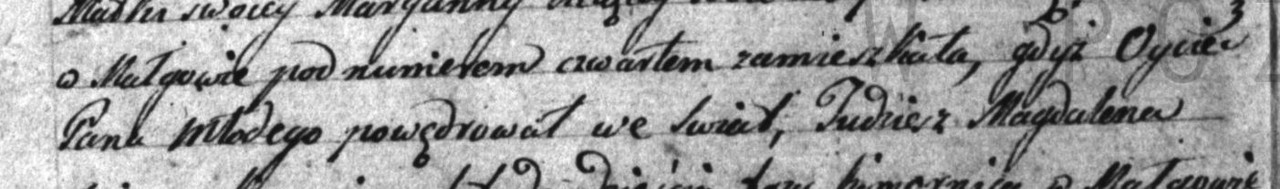 Matki swoiey Maryanny
w Małgowie pod numerem czwartem zamieszkała, gdyż Oyciec
Pana młodego powędrował we swiat, Tudziesz Magdalena
komornica w Małgowie